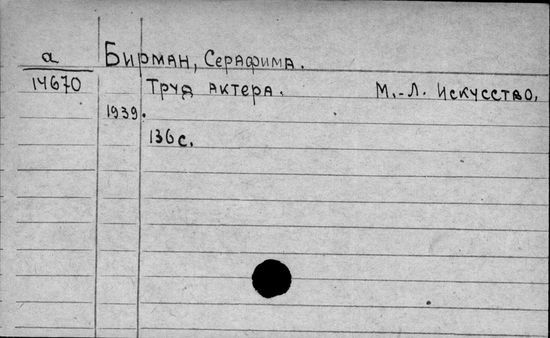 а Бирман, Серафима.
14670 Труд актера. М.-Л. Искусство,
1939.
136 с.